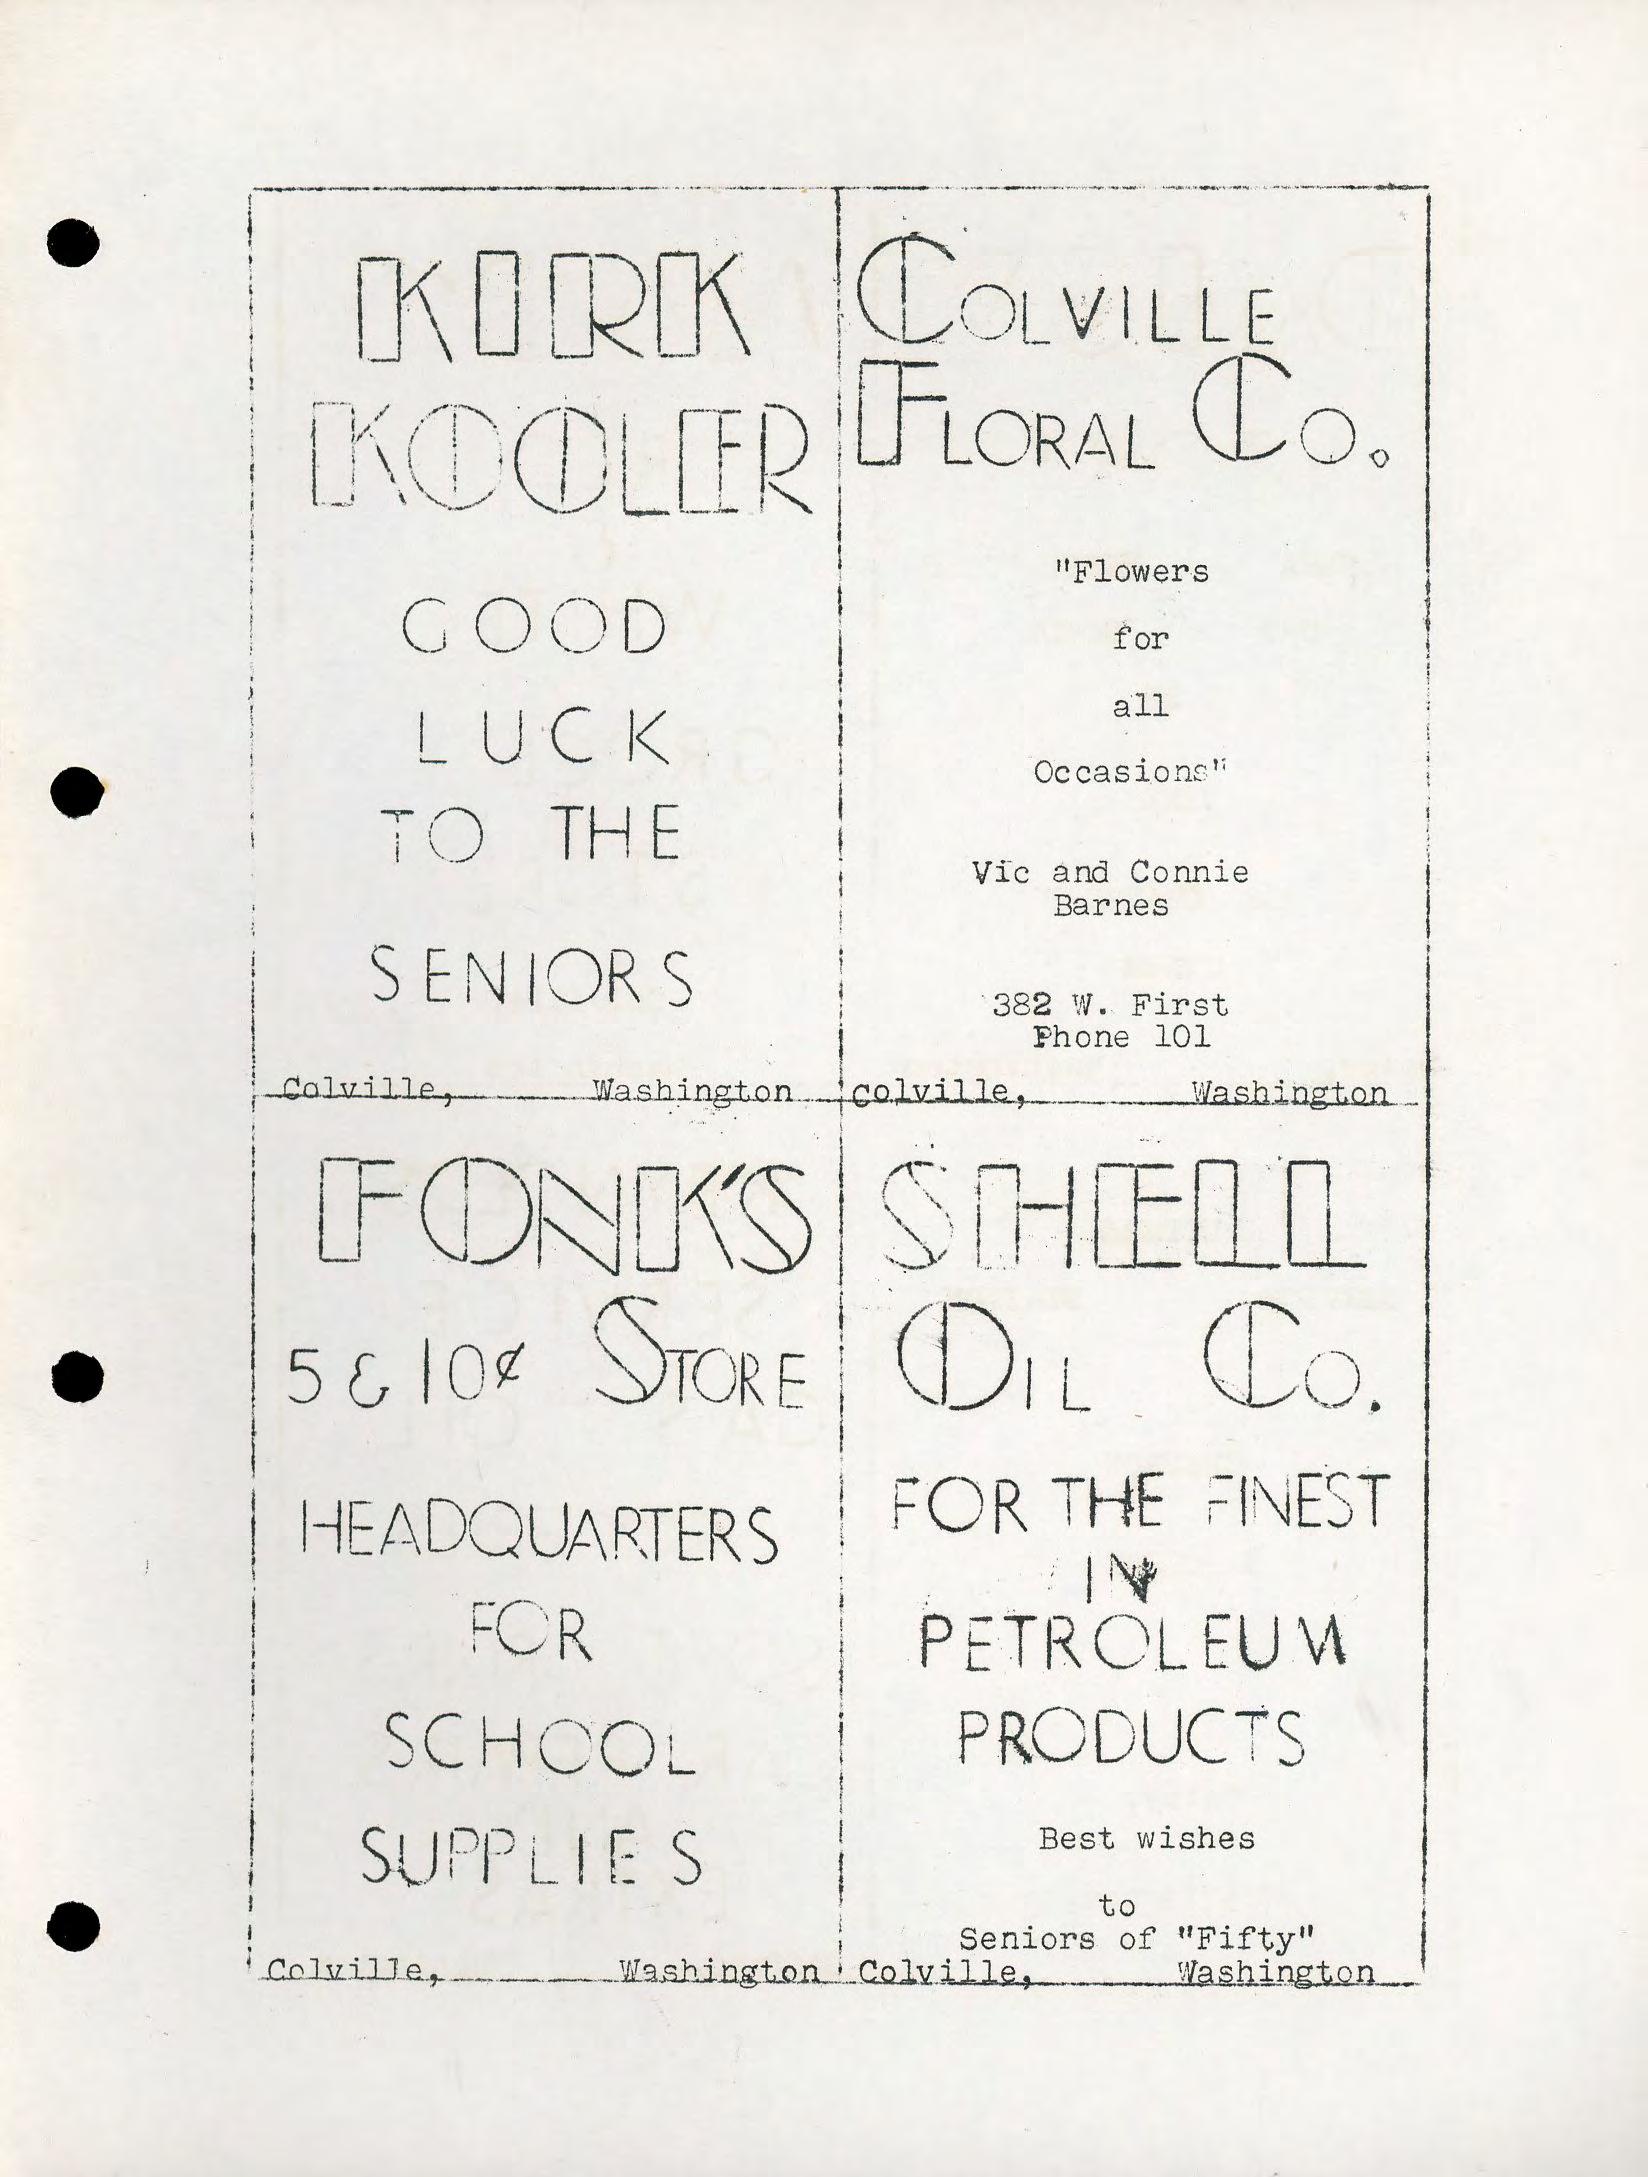 KIRK
KOOLER
GOOD
LUCK
TO THE
SENIORS
Colville, Washington
COLVILLE
FLORAL CO.
"Flowers
for
all
Occasions"
Vic and Connie
Barnes
382 W. First
Phone 101
Colville, Washington
FONK'S
5 & 10¢ STORE
HEADQUARTERS
FOR
SCHOOL
SUPPLIES
Colville, Washington
SHELL
OIL CO.
FOR THE FINEST
IN
PETROLEUM
PRODUCTS
Best wishes
to
Seniors of "Fifty"
Colville, Washington